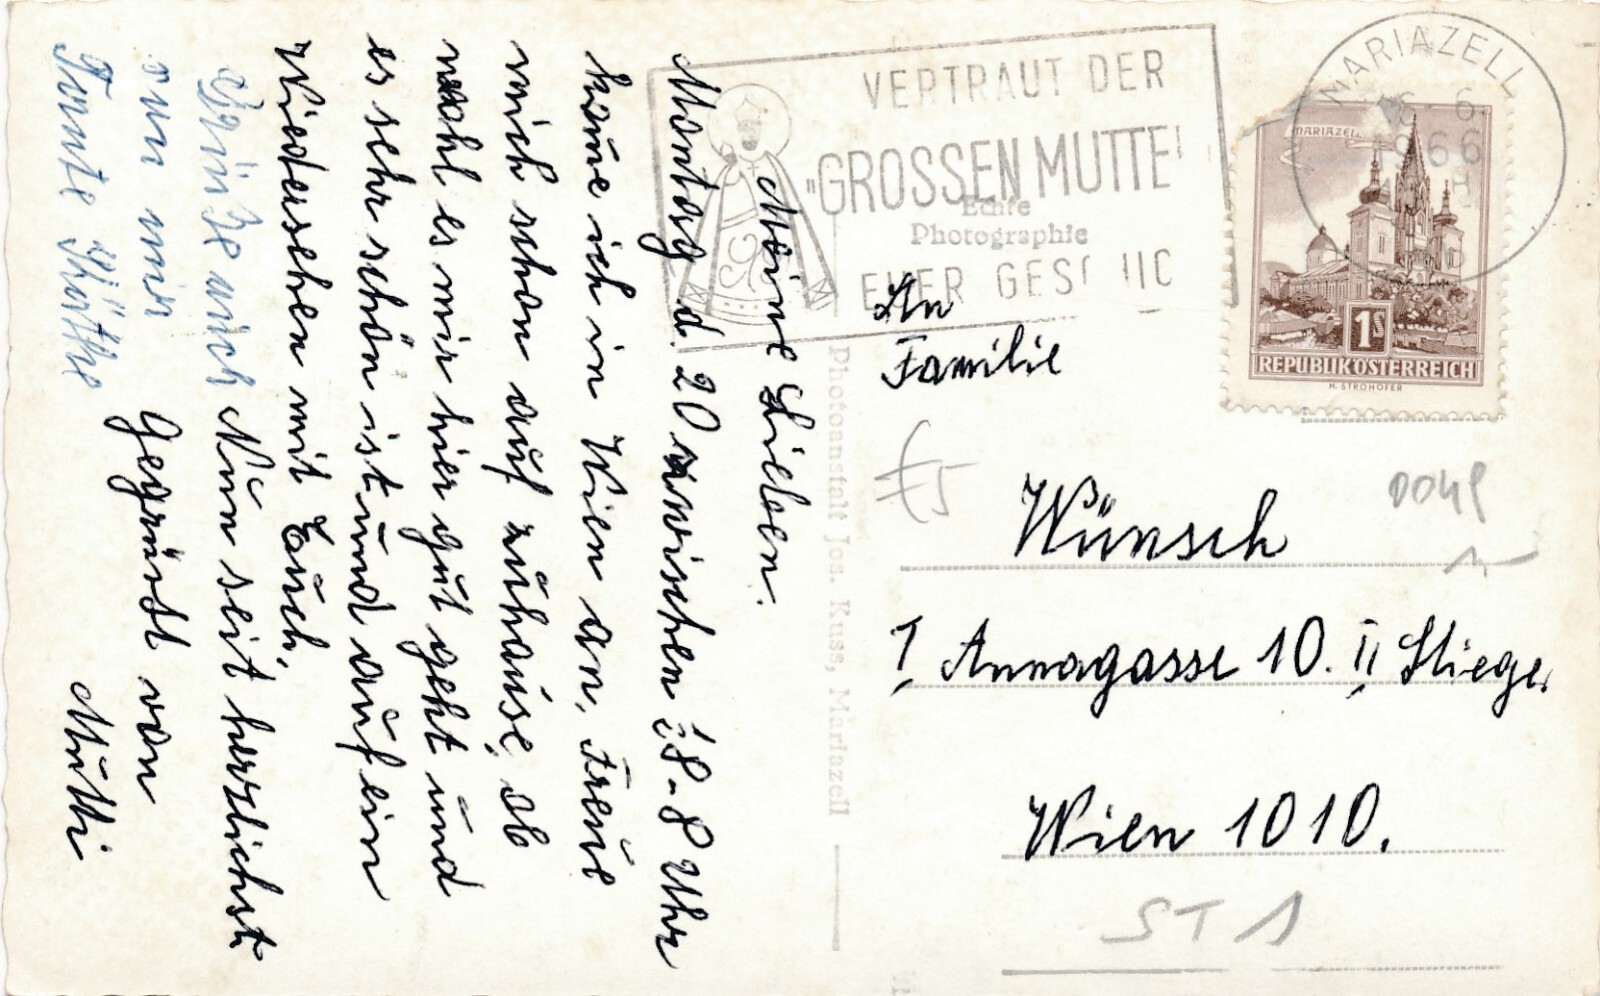 Meine Lieben.
Montag d. 20 zwischen 18-8 Uhr
kome ich in Wien an, freue
mich schon auf zuhause, ob
wohl es mir hier gut geht und
es sehr schön ist und auf ein
Wiedersehen mit Euch.
Nun seit herzlichst
Gegrüsst von
Mutti
Grüße auch
von mir
Tante Käthe
VERTRAUT DER
"GROSSEN MUTTE
EUER GESCHIC
Echte
Photographie
Photoanstalt Jos. Kuss, Mariazell
MARIAZELL
6.
966
MARIAZELL
1S
REPUBLIK ÖSTERREICH
H. STROHOFER
An
Familie
Wünsch
I Annagasse 10. II Stiege.
Wien 1010.
€5
0049
ST 1